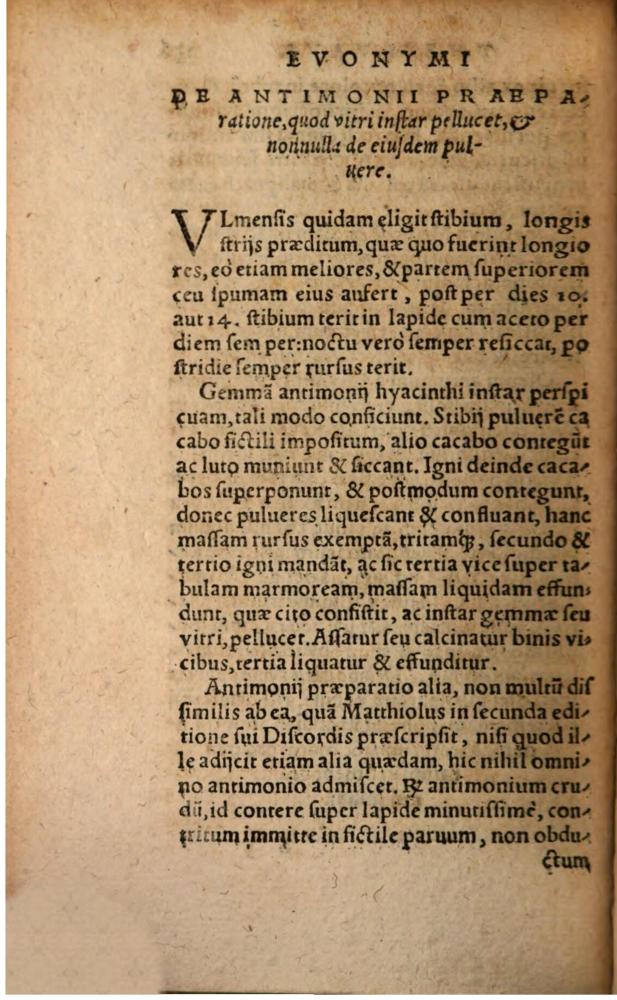 EVONYMI
DE ANTIMONII PRAEPA-
ratione, quod vitri instar pellucet, &
nonnulla de eiusdem pul-
uere.
VLmensis quidam eligit stibium, longis
strijs præditum, quæ quo fuerint longio
res, eò etiam meliores, & partem superiorem
ceu spumam eius aufert, post per dies 10.
aut 14. stibium terit in lapide cum aceto per
diem semper: noctu verò semper resiccat, po
stridie semper rursus terit.
Gemmã antimonij hyacinthi instar perspi
cuam, tali modo conficiunt. Stibij puluerẽ ca
cabo fictili impositum, alio cacabo contegũt
ac luto muniunt & siccant. Igni deinde caca-
bos superponunt, & postmodum contegunt,
donec pulueres liquescant & confluant, hanc
massam rursus exemptã, tritamq́;, secundo &
tertio igni mandãt, ac sic tertia vice super ta-
bulam marmoream, massam liquidam effun-
dunt, quæ cito consistit, ac instar gemmæ seu
vitri, pellucet. Assatur seu calcinatur binis vi-
cibus, tertia liquatur & effunditur.
Antimonij præparatio alia, non multũ dis
similis ab ea, quã Matthiolus in secunda edi-
tione sui Discordis præscripsit, nisi quod il-
le adijcit etiam alia quædam, hic nihil omni-
no antimonio admiscet. ℞ antimonium cru-
dũ, id contere super lapide minutissimè, con-
tritum immitte in fictile paruum, non obdu-
ctum